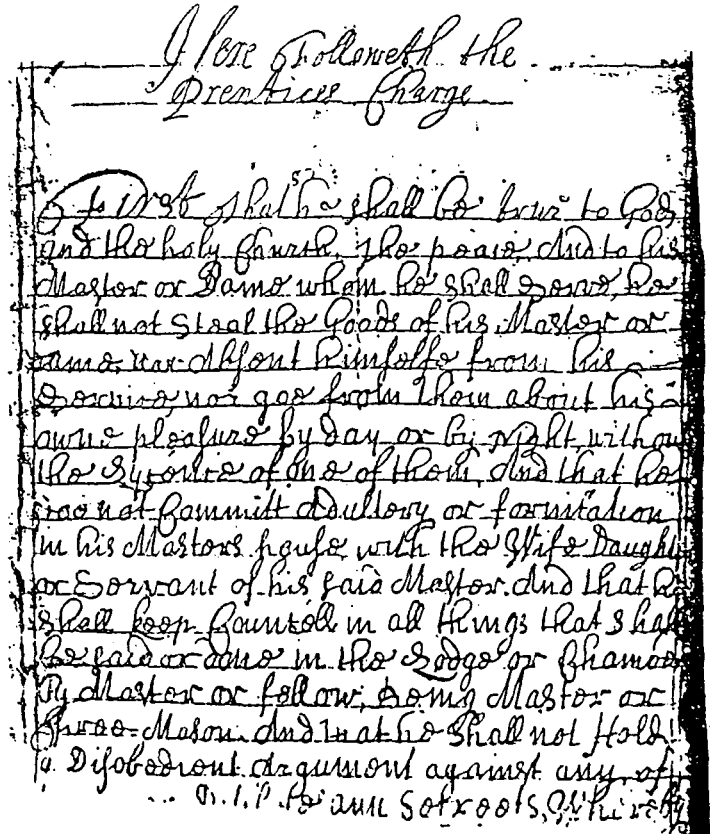 Here Followeth the
Prentices Charge
First shal he shall be true to God
and the holy Church, the peace, And to his
Master or Dame whom he shall serve, he
shall not Steal the Goods of his Master or
Dame, nor Absent himselfe from his
Service, nor goe from them about his
owne pleasure by day or by Night, without
the Lycence of one of them, And that he
doe not Committ Adultery or fornication
in his Masters house, with the Wife Daughter
or Servant of his said Master. And that he
shall keep Councell in all things that shall
be said or done in the Lodge or Chamber
By Master or fellow, being Master or
Free-Mason. And that he Shall not Hold
a Disobedient Argument against any of
to any Secreets, Whereby